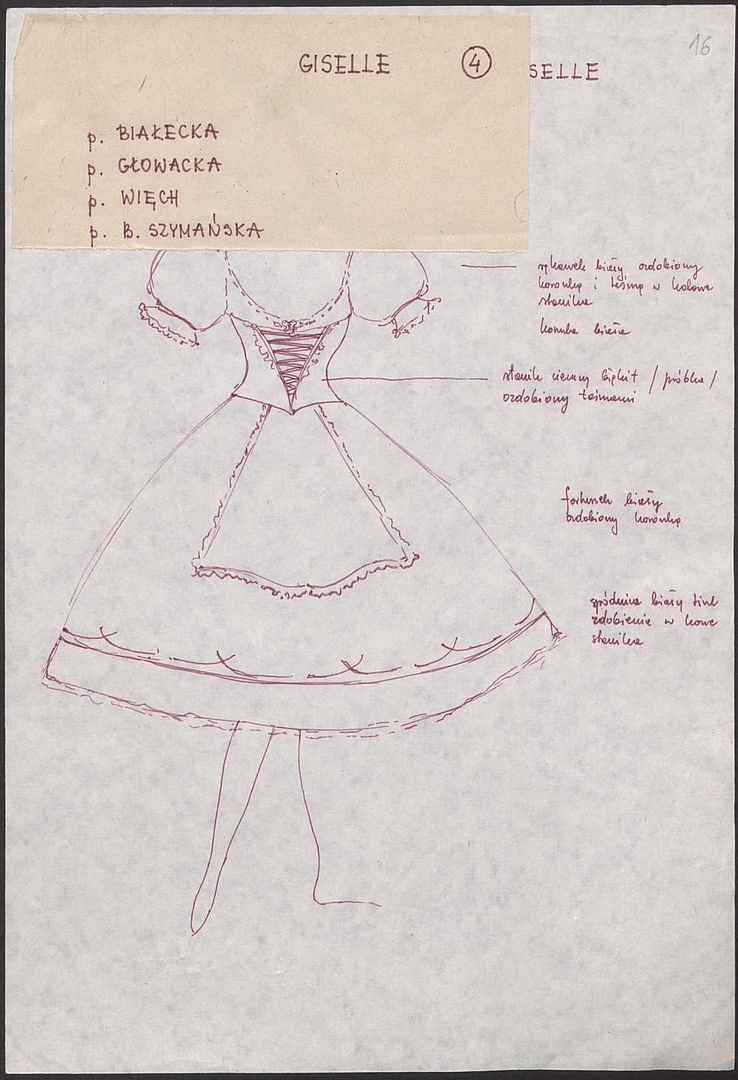 16
GISELLE 4
SELLE
p. BIAŁECKA
p. GŁOWACKA
p. WIĘCH
p. B. SZYMAŃSKA
rękawek biały ozdobiony
koronką i taśmą w kolorze
stanika
koronka biała
stanik ciemny błękit / próbka /
ozdobiony taśmami
fartuszek biały
ozdobiony koronką
spódnica biały tiul
zdobienie w kolorze
stanika